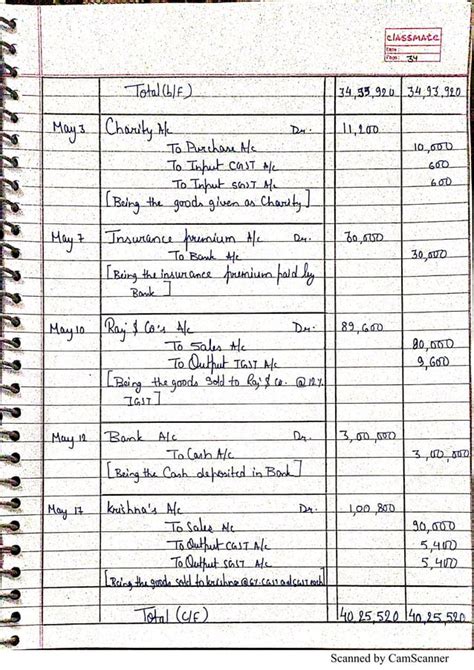 classmate
Date
Page 34
Total (b/F) 34,93,920 34,93,920
May 3 Charity A/c Dr. 11,200
To Purchase A/c 10,000
To Input CGST A/c 600
To Input SGST A/c 600
[Being the goods given as Charity]
May 7 Insurance premium A/c Dr. 30,000
To Bank A/c 30,000
[Being the insurance premium paid by
Bank]
May 10 Raj & Co's A/c Dr. 89,600
To Sales A/c 80,000
To Output IGST A/c 9,600
[Being the goods sold to Raj & Co. @ 12%
IGST]
May 12 Bank A/c Dr. 3,00,000
To Cash A/c 3,00,000
[Being the Cash deposited in Bank]
May 17 Krishna's A/c Dr. 1,00,800
To Sales A/c 90,000
To Output CGST A/c 5,400
To Output SGST A/c 5,400
[Being the goods sold to krishna @ 6% CGST and SGST each]
Total (C/F) 40,25,520 40,25,520
Scanned by CamScanner